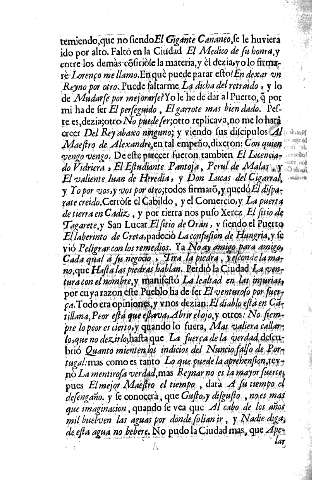 temiendo, que no siendo El Gigante Cananeo, se le huviera
ido por alto. Faltò en la Ciudad El Medico de su honra, y
entre los demàs cõsirióse la materia, y él dezia; yo lo firma-
rè Lorenço me llamo. En què puede parar esto? En dexar un
Reyno por otro. Puede faltarme La dicha del retraido, y lo
de Mudarse por mejorarse? Yo le he de dar al Puerto, q̃ por
mi ha de ser El perseguido, El garrote mas bien dado. Pes-
te es, dezia; otro No puede ser; otro replicava, no me lo harà
creer Del Rey abaxo ninguno; y viendo sus discipulos Al
Maestro de Alexandro, en tal empeño, dixeron: Con quien
vengo vengo. De este parecer fueron tambien El Licencia-
do Vidriera, El Estudiante Pantoja, Perul de Malta, y
El valiente Juan de Heredia, y Don Lucas del Cigarral,
y Yo por vos, y vos por otro; todos firmarõ, y quedó El dispa-
rate creido. Cerróse el Cabildo, y el Comercio, y La puerta
de tierra en Cadiz, y por tierra nos puso Xerez. El sitio de
Tagarete, y San Lucar El sitio de Oràn, y siendo el Puerto
El laberinto de Greta, padeciò La confusion de Hungria, y se
viò Peligrar con los remedios. Ya No ay amigo para amigo,
Cada qual à su negocio, Tira la piedra, y esconde la ma-
no, que Hasta las piedras hablan. Perdiò la Ciudad La ven-
tura con el nombre, y manifestó La lealtad en las injurias,
por cuya razon este Pueblo ha de ser El venturoso por fuer-
ça. Todo era opiniones, y vnos dezian: El diablo està en Can-
tillana, Peor està que estava, Abrir el ojo, y otros: No siem-
pre lo peor es cierto, y quando lo fuera, Mas valiera callar-
lo, que no dezirlo, hasta que La fuerça de la verdad descu-
brió Quanto mienten los indicios del Nuncio falso de Por-
tugal: mas como es tanto Lo que puede la aprehension, rey-
nó La mentirosa verdad, mas Reynar no es la mayor suerte,
pues El mejor Maestro el tiempo, darà A su tiempo el
desengaño, y se conocerà, que Gusto, y disgusto, no es mas
que imaginacion, quando se vea que Al cabo de los años
mil buelven las aguas por donde solian ir, y Nadie diga,
de esta agua no bebere. No pudo la Ciudad mas, que Ape-
lar